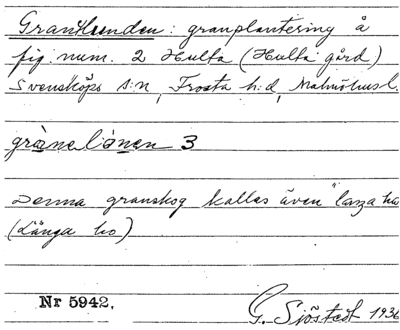 Granlunden: granplantering å
fig. num. 2 Hulta (Hulta gård)
Svensköps s:n, Frosta h:d, Malmöhus l.
3
Denna granskog kallas även "laza ho
(Långa ho)
Nr 5942.
G. Sjöstedt 1936